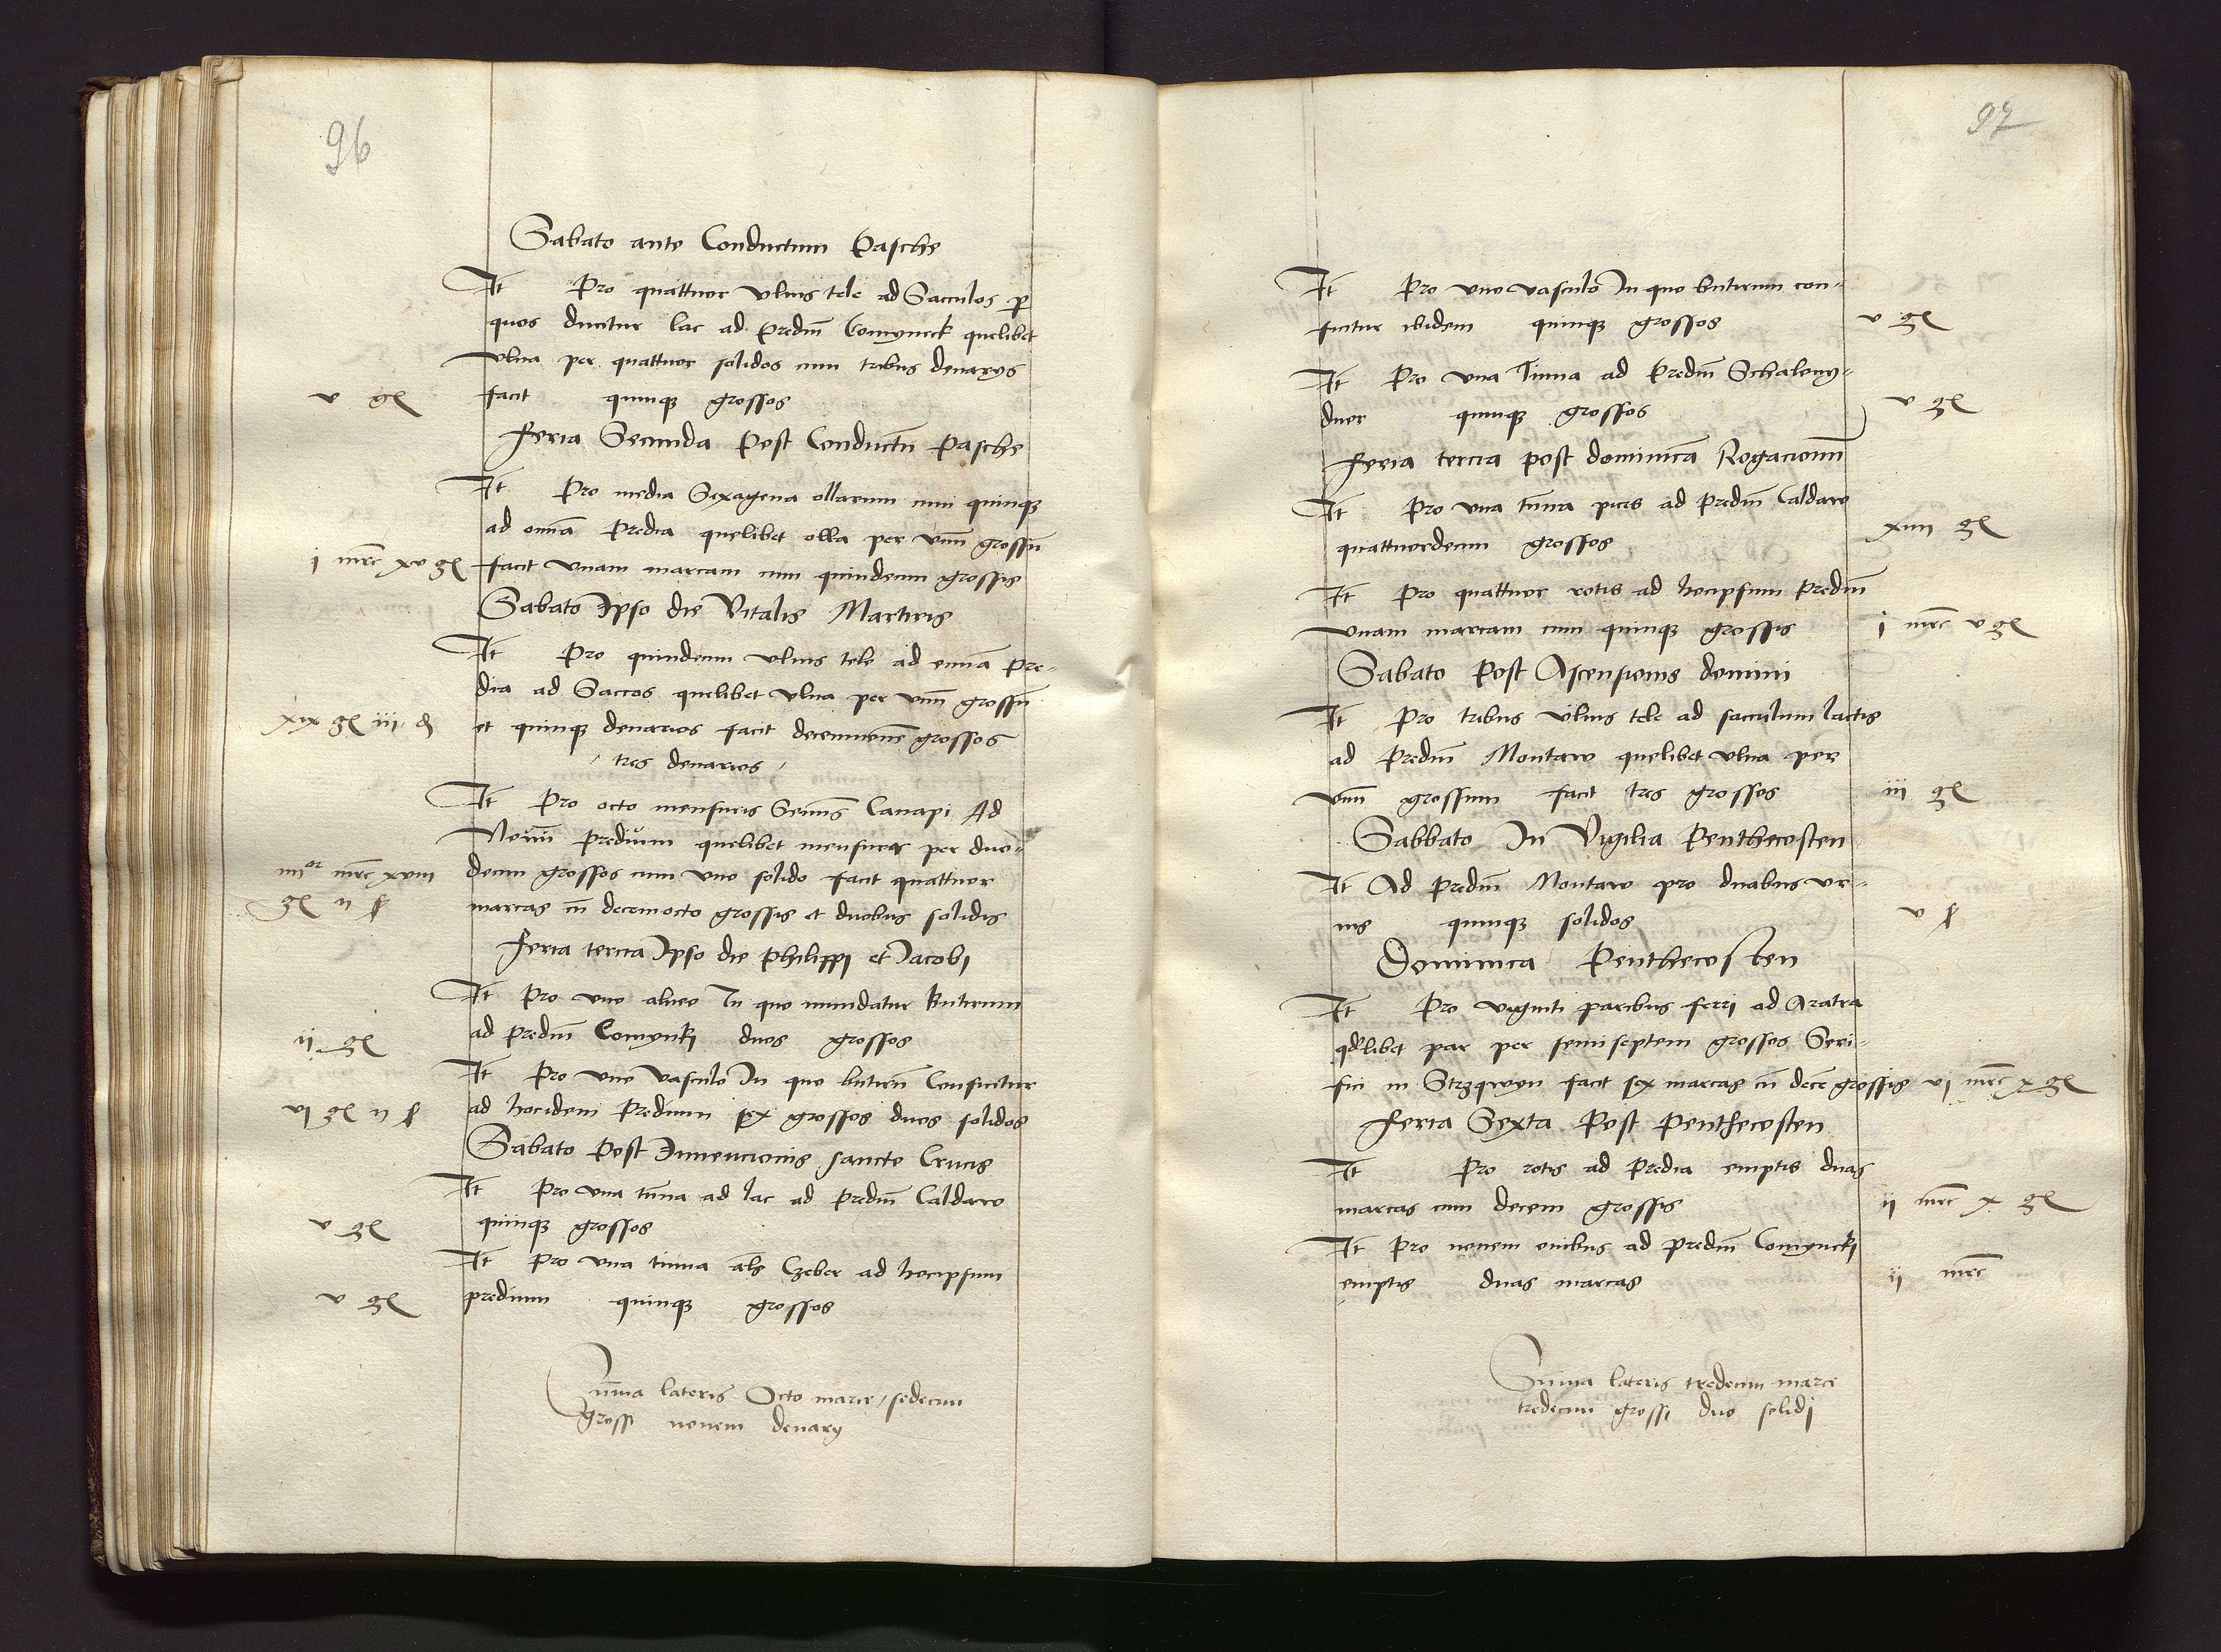 96
Sabato ante Conductum Pasche
It Pro quattuor ulnis tele ad Sacculos per
quos ducitur lac ad Prediū Comynick quelibet
vlna per quattuor solidos cum tribus denarys
v gl facit quinqꝫ grossos
Feria Secunda Post Conductū Pasche
It Pro media Sexagena ollarum cum quinqꝫ
ad omīa Predia quelibet olla per vnū grossū
j mrc xv gl facit vnam marcam cum quindecim grossis
Sabato Ipso die Vitalis Martiris
It Pro quindecim vlnis tele ad omīa pre-
dia ad Saccos quelibet vlna per vnū grossū
xix gl iii d et quinqꝫ denarios facit decemnouē grossos
tres denarios
It Pro octo mensuris Seminis Canapi Ad
Nouū predium quelibet mensura per duo-
iiiior mrc xviii decim grossos cum vno solido facit quattuor
gl ii ß marcas cū decemocto grossis et duobus solidis
Feria tercia Ipso die Philippi et Jacobi
It Pro vno alueo In quo mundatur Butirum
ii gl ad prediū Comynki duos grossos
It Pro vno Vasculo In quo butirū Conficitur
vi gl ii ß ad hocidem Predium sex grossos duos solidos
Sabato Post Inuencionis sancte Crucis
It Pro vna tūna ad lac ad prediū Caldaw
v gl quinqꝫ grossos
It Pro vna tinna als Czeber ad hocipsum
v gl predium quinqꝫ grossos
Sūma lateris Octo marce / sedecim
grossi nouem denary
97
It Pro vno vasculo In quo butirum con-
ficitur ibidem quinqꝫ grossos v gl
It Pro vna Tinna ad Prediū Schalony-
duor quinqꝫ grossos v gl
Feria tercia post dominicā Rogacionū
It Pro vna tūna picis ad prediū Caldaw
quattuordecim grossos xiiii gl
It Pro quattuor rotis ad hocipsum prediū
vnam marcam cum quinqꝫ grossis j mrc v gl
Sabato Post Ascensionis domini
It Pro tribus vlnis tele ad sacculum lactis
ad Prediū Montaw quelibet vlna per
vnū grossum facit tres grossos iii gl
Sabbato In Vigilia Penthecosten
It Ad prediū Montaw pro duabus vr-
nis quinqꝫ solidos v ß
Dominica Penthecosten
It Pro viginti paribus ferri ad Aratra
qdlibet par per semiseptem grossos Seri-
fici in Strzqwyn facit sex marcas cū decē grossis vi mrc x gl
Feria Sexta Post Penthecosten
It Pro rotis ad Predia emptis duas
marcas cum decem grossis ii mrc x gl
It Pro nouem ouibus ad prediū Comyncki
emptis duas marcas ii mrc
Sūma lateris tredecim marce
tredecim grossi duo solidi